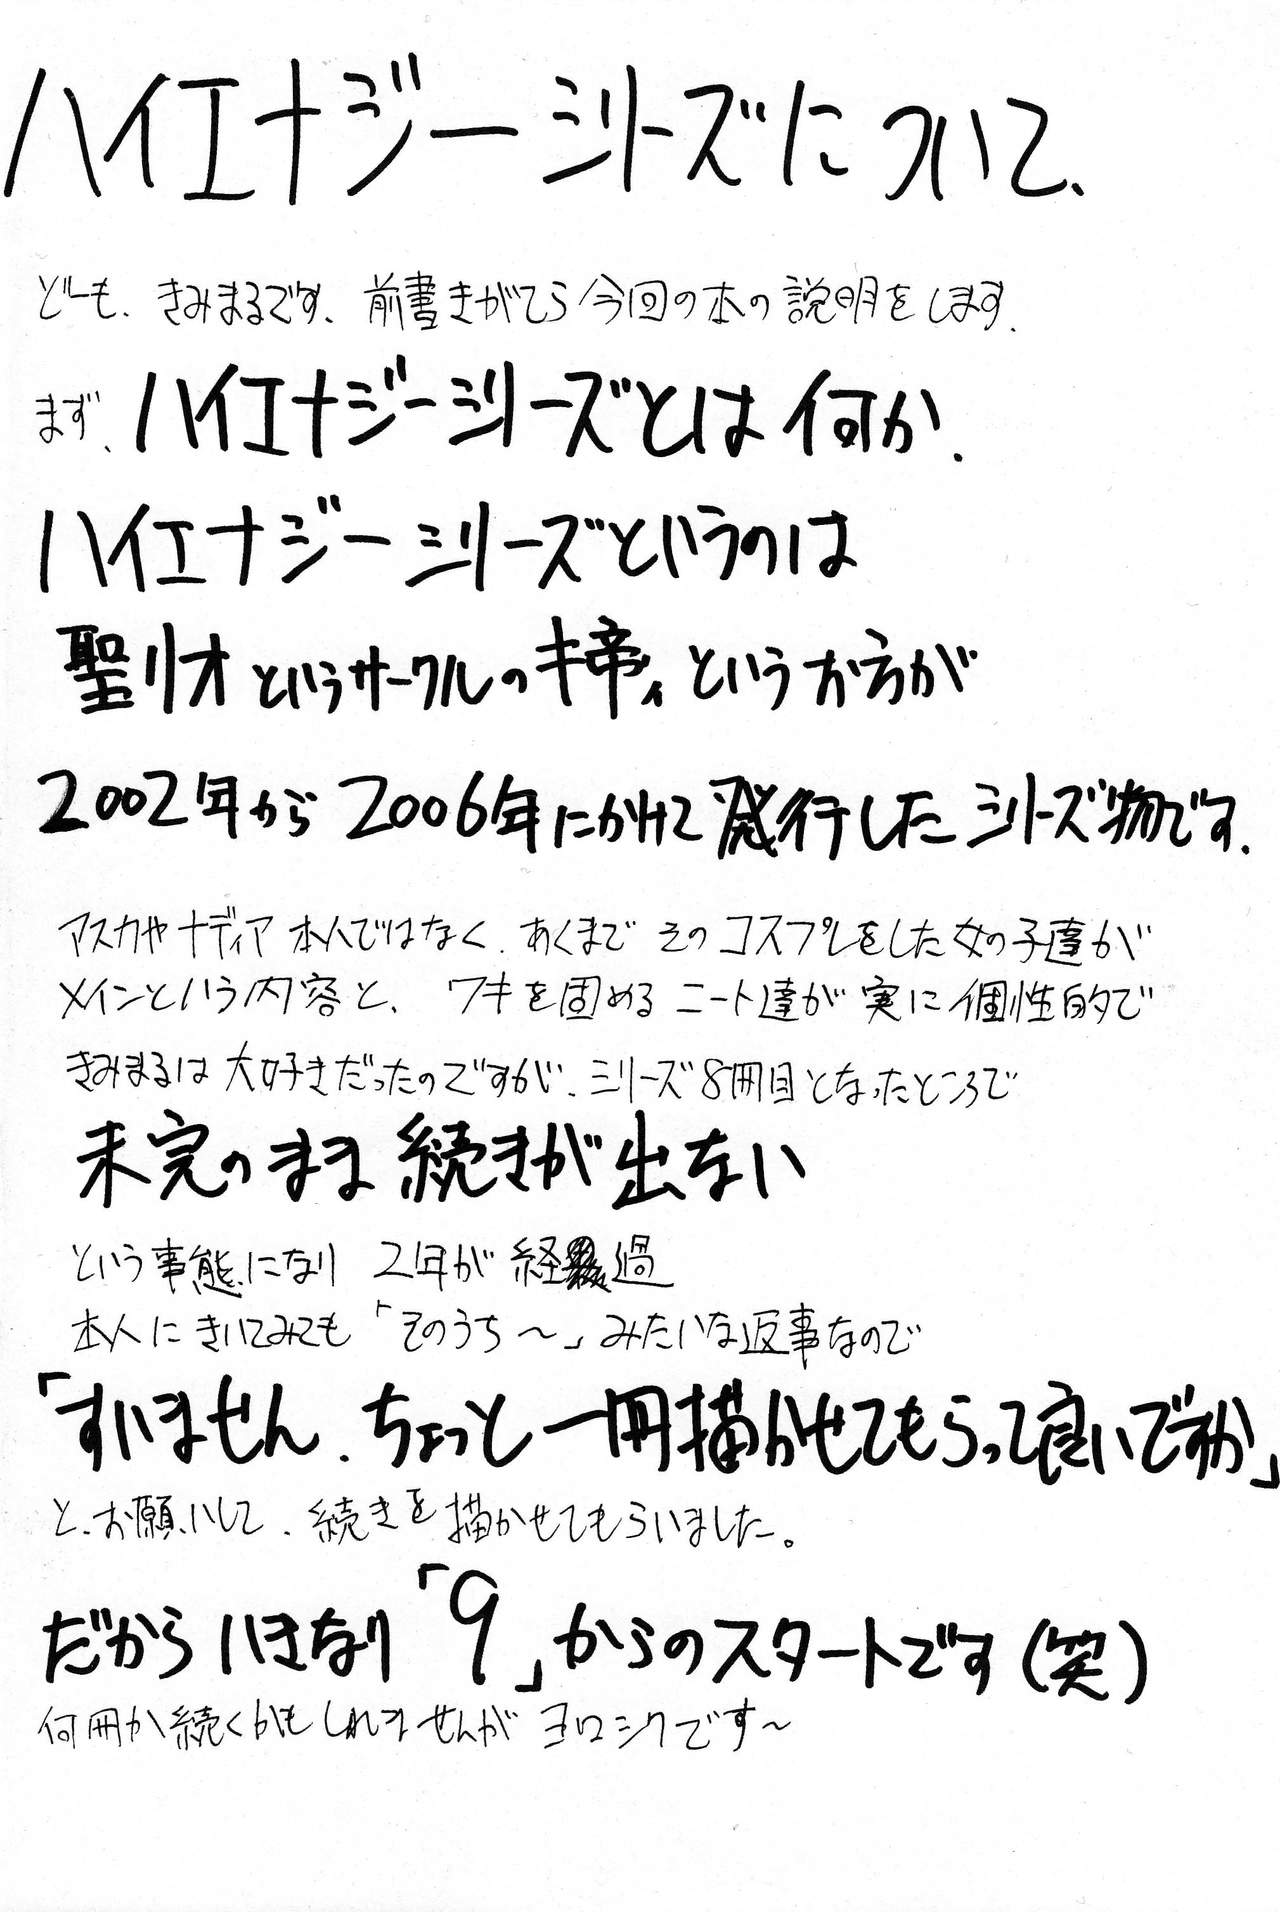 ハイエナジーシリーズについて、
どーも、きみまるです、前書きがてら今回の本の説明をします.
まず、ハイエナジーシリーズとは何か.
ハイエナジーシリーズというのは
聖リオというサークルのキ帝ィというお方が
2002年から2006年にかけて発行したシリーズ物です.
アスカやナディア本人ではなく、あくまでそのコスプレをした女の子達が
メインという内容と、ワキを固めるニート達が実に個性的で
きみまるは大好きだったのですが、シリーズ8冊目となったところで
未完のまま続きが出ない
という事態になり 2年が経過
本人にきいてみても「そのうち〜」みたいな返事なので
「すいません、ちょっと一冊描かせてもらって良いですか」
と、お願いして、続きを描かせてもらいました。
だからいきなり「9」からのスタートです(笑)
何冊か続くかもしれませんがヨロシクです〜